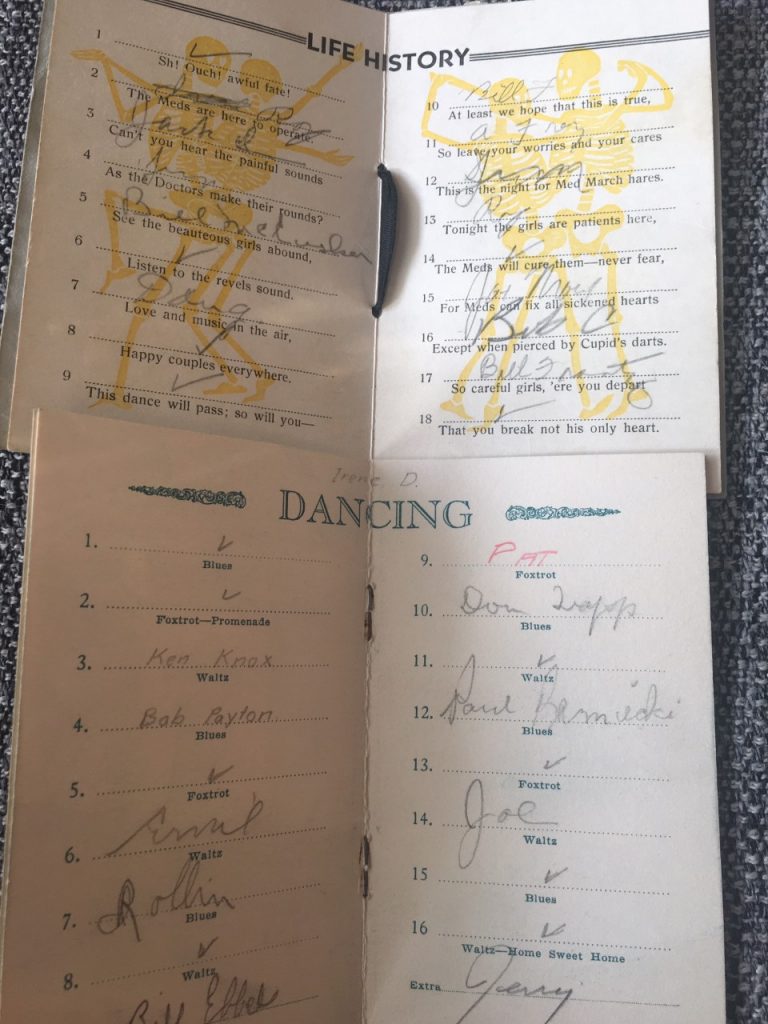 LIFE HISTORY
1 ✓
Sh! Ouch! awful fate!
2
The Meds are here to operate.
3 Jack
Can't you hear the painful sounds
4 Jim
As the Doctors make their rounds?
5 Bill
See the beauteous girls abound,
6 ✓
Listen to the revels sound.
7 Doug
Love and music in the air,
8 ✓
Happy couples everywhere.
9 ✓
This dance will pass; so will you—
10 Bill F
At least we hope that this is true,
11
So leave your worries and your cares
12
This is the night for Med March hares.
13
Tonight the girls are patients here,
14 ✓
The Meds will cure them—never fear,
15
For Meds can fix all sickened hearts
16 Bill C
Except when pierced by Cupid's darts.
17 Bill
So careful girls, 'ere you depart
18 ✓
That you break not his only heart.
Irene D.
DANCING
1. ✓
Blues
2. ✓
Foxtrot—Promenade
3. Ken Knox
Waltz
4. Bab Payton
Blues
5. ✓
Foxtrot
6.
Waltz
7. Rollin
Blues
8. ✓
Waltz
Bill
9. PAT
Foxtrot
10. Don Trapp
Blues
11. ✓
Waltz
12. Paul
Blues
13. ✓
Foxtrot
14. Joe
Waltz
15 ✓
Blues
16 ✓
Waltz—Home Sweet Home
Extra Jerry